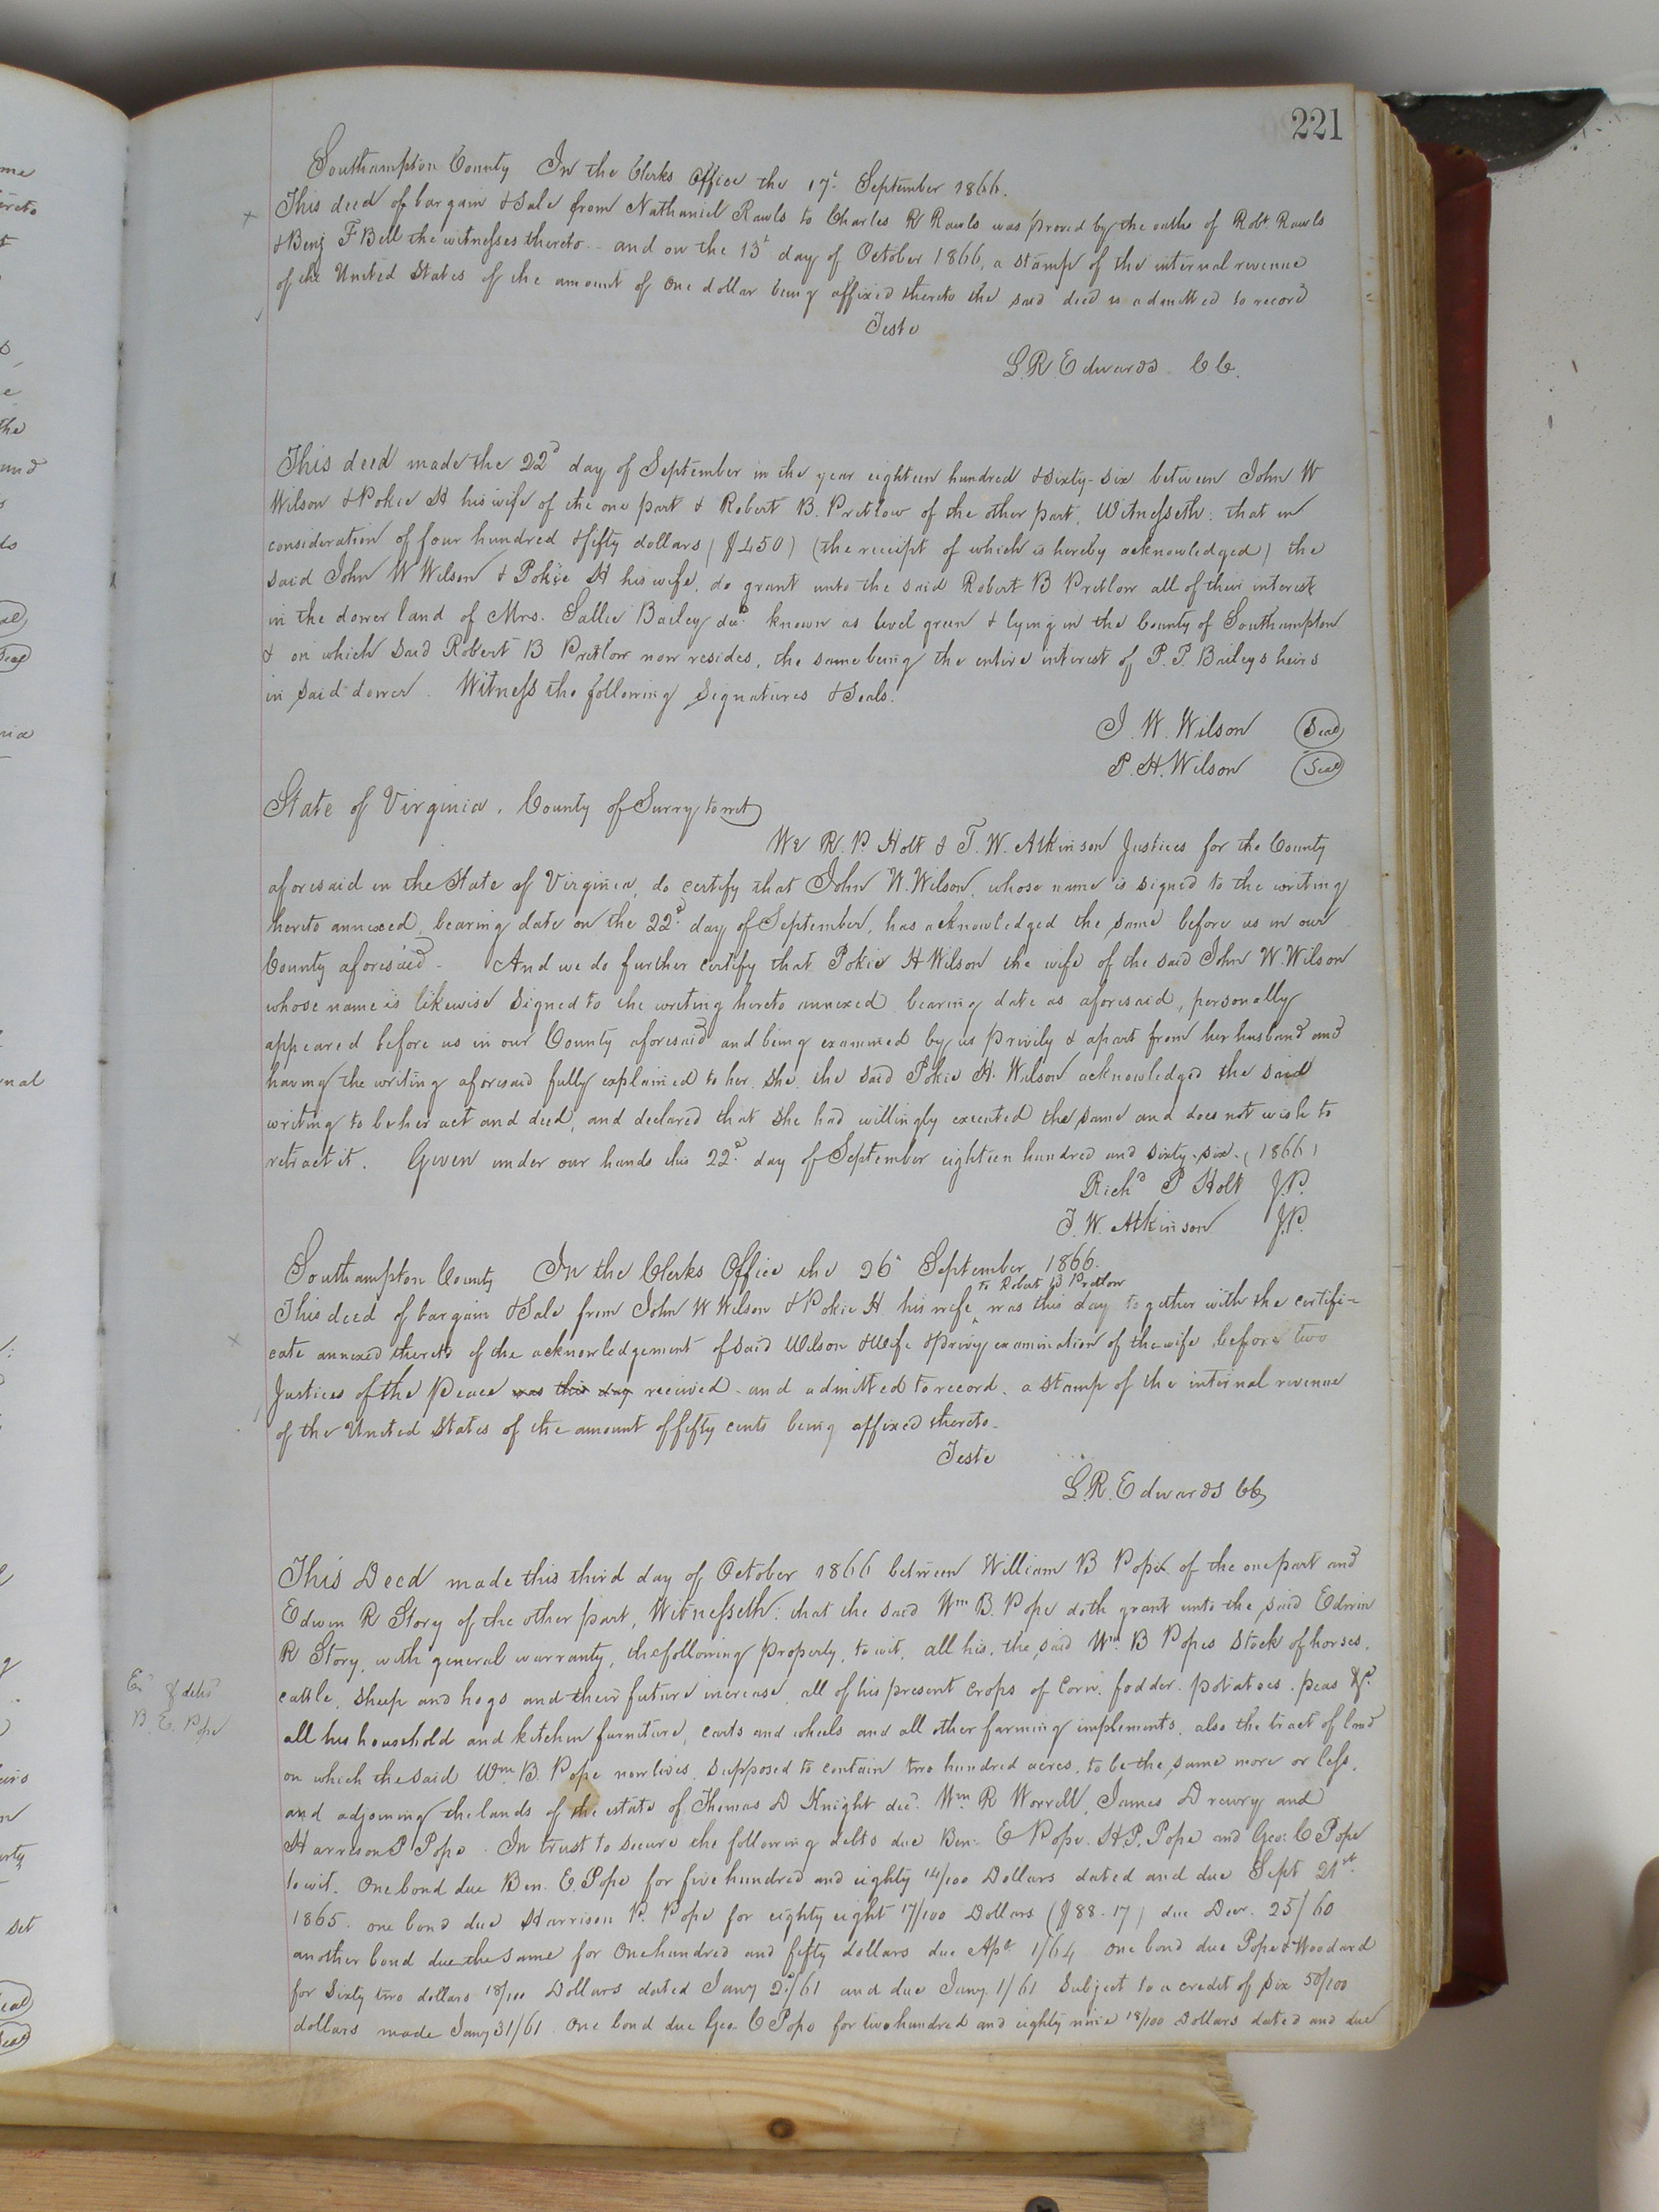 221
Southampton County In the Clerks Office the 17th September 1866.
This deed of bargain & Sale from Nathaniel Rawls to Charles R Rawls was proved by the oaths of Robt Rawls
& Benj F Bell the witnesses thereto - and on the 13th day of October 1866, a stamp of the internal revenue
of the United States of the amount of One dollar being affixed thereto the said deed is admitted to record
Teste
L.R. Edwards CC.
This deed made the 22d day of September in the year eighteen hundred & sixty-six between John W
Wilson & Pokie H his wife of the one part & Robert B. Pretlow of the other part, Witnesseth: that in
consideration of four hundred & fifty dollars ($450) (the receipt of which is hereby acknowledged) the
said John W Wilson & Pokie H his wife, do grant unto the said Robert B Pretlow all of their interest
in the dower land of Mrs. Sallie Bailey decd. known as level green & lying in the County of Southampton
& on which said Robert B Pretlow now resides, the same being the entire interest of P. P. Baileys heirs
in said dower. Witness the following signatures & Seals.
J. W. Wilson Seal
P. H. Wilson Seal
State of Virginia, County of Surry to wit
We R. P. Holt & T. W. Atkinson Justices for the County
aforesaid in the State of Virginia, do certify that John W. Wilson, whose name is signed to the writing
hereto annexed, bearing date on the 22d. day of September, has acknowledged the same before us in our
County aforesaid - And we do further certify that Pokie H Wilson the wife of the said John W. Wilson
whose name is likewise signed to the writing hereto annexed bearing date as aforesaid, personally
appeared before us in our County aforesaid and being examined by us privily & apart from her husband and
having the writing aforesaid fully explained to her, she the said Pokie H. Wilson acknowledged the said
writing to be her act and deed, and declared that she had willingly executed the same and does not wish to
retract it. Given under our hands this 22d. day of September eighteen hundred and sixty-six. (1866)
Richd P Holt J.P.
T. W. Atkinson J.P.
Southampton County In the Clerks Office the 26th September 1866.
to Robert B Pretlow
This deed of bargain & Sale from John W Wilson & Pokie H. his wife was this day together with the certifi-
cate annexed thereto of the acknowledgement of said Wilson & Wife & privy examination of the wife before two
Justices of the Peace was this day received and admitted to record, a stamp of the internal revenue
of the United States of the amount of fifty cents being affixed thereto.
Teste
L.R. Edwards CC
This Deed made this third day of October 1866 between William B Pope of the one part and
Edwin R Story of the other part, Witnesseth: that the said Wm B. Pope doth grant unto the said Edwin
R Story, with general warranty, the following property, to wit, all his, the said Wm. B Popes stock of horses,
cattle, sheep and hogs and their future increase, all of his present crops of Corn, fodder, potatoes, peas &c.
B. E. Pope
all his household and kitchen furniture, carts and wheels and all other farming implements, also the tract of land
on which the said Wm. B. Pope now lives, supposed to contain two hundred acres, to be the same more or less,
and adjoining the lands of the estate of Thomas D Knight decd. Wm. R Worrell, James Drewry and
Harrison P Pope. In trust to secure the following debts due Ben: E Pope, H.P. Pope and Geo: C Pope
to wit. One bond due Ben. E. Pope for five hundred and eighty 14/100 Dollars dated and due Sept 21st
1865. one bond due Harrison P. Pope for eighty eight 17/100 Dollars ($88.17) due Decr. 25/60
another bond due the same for One hundred and fifty dollars due Apl. 1/64 one bond due Pope & Woodard
for Sixty two dollars 18/100 Dollars dated Jany 2d/61 and due Jany. 1/61 Subject to a credit of six 50/100
dollars made Jany 31/61. One bond due Geo. C Pope for two hundred and eighty nine 18/100 Dollars dated and due